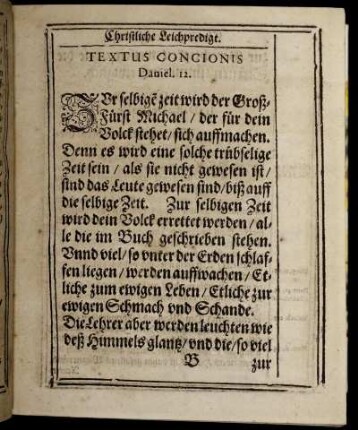 Christliche Leichpredigt.
TEXTUS CONCIONIS
Daniel. 12.
ZVr selbigẽ zeit wird der Groß-
Fürst Michael / der für dein
Volck stehet / sich auffmachen.
Denn es wird eine solche trübselige
Zeit sein / als sie nicht gewesen ist /
sind das Leute gewesen sind / biß auff
die selbige Zeit. Zur selbigen Zeit
wird dein Volck errettet werden / al-
le die im Buch geschrieben stehen.
Vnnd viel / so vnter der Erden schlaf-
fen liegen / werden auffwachen / Et-
liche zum ewigen Leben / Etliche zur
ewigen Schmach vnd Schande.
Die Lehrer aber werden leuchten wie
deß Himmels glantz / vnd die / so viel
B zur